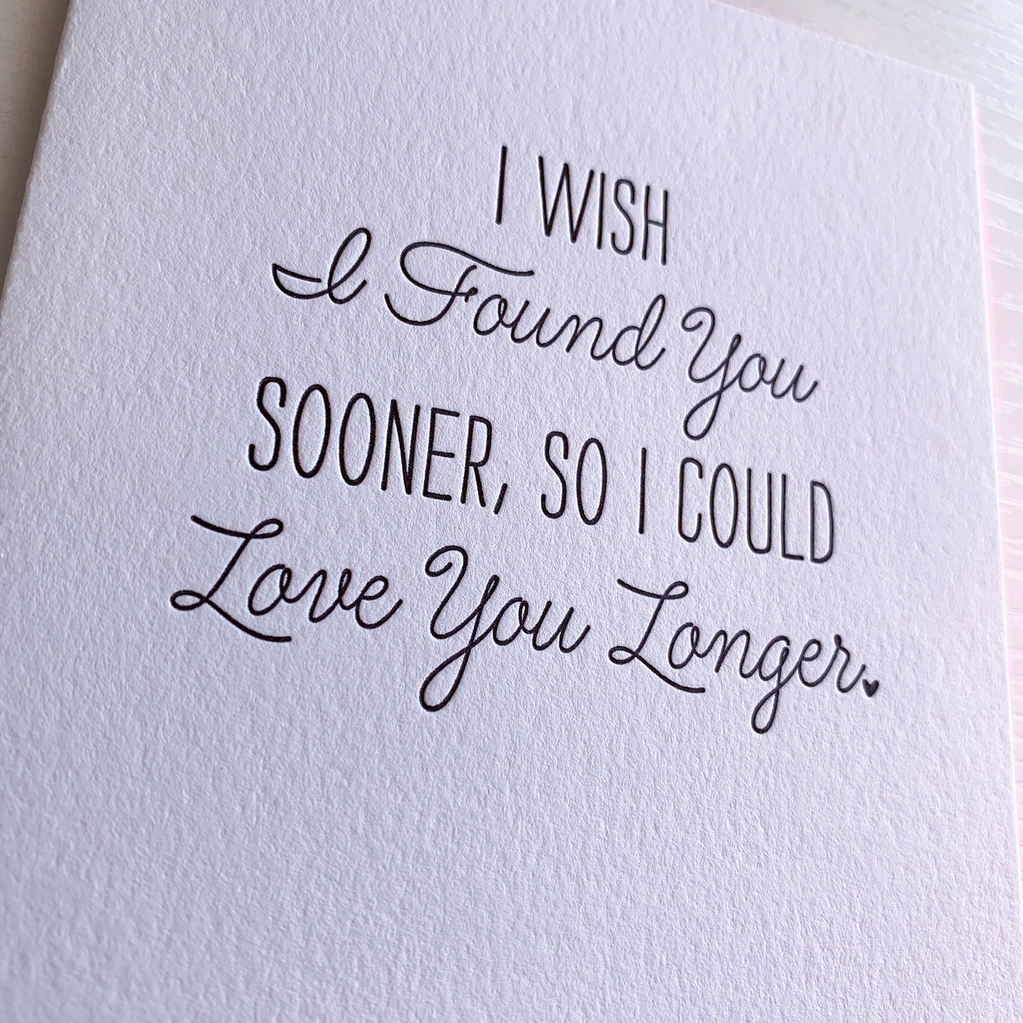 I WISH
I Found You
SOONER, SO I COULD
Love You Longer.